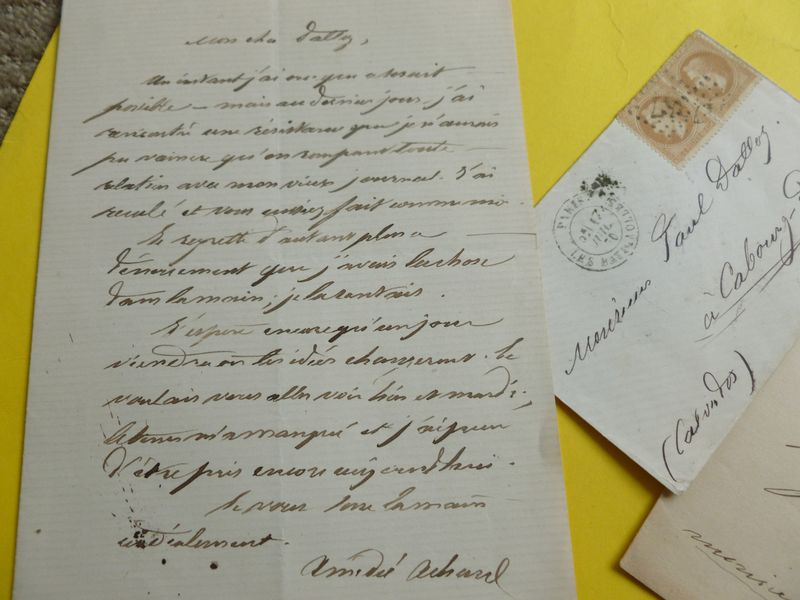 Mon cher Dalloz,
Un instant j'ai cru que ce serait
possible — mais au dernier jour j'ai
rencontré une résistance que je n'aurais
pu vaincre qu'en rompant toute
relation avec mon vieux journal. J'ai
reculé et vous auriez fait comme moi.
Je regrette d'autant plus ce
dénouement que j'avais la chose
dans la main; je la sentais.
J'espère encore qu'un jour
viendra où les idées changeront. Je
voulais vous aller voir hier et mardi,
le temps m'a manqué et j'ai peur
d'être pris encore aujourd'hui.
Je vous serre la main
cordialement.
Amédée Achard
PARIS
Monsieur Paul Dalloz
à Cabourg
(Calvados)